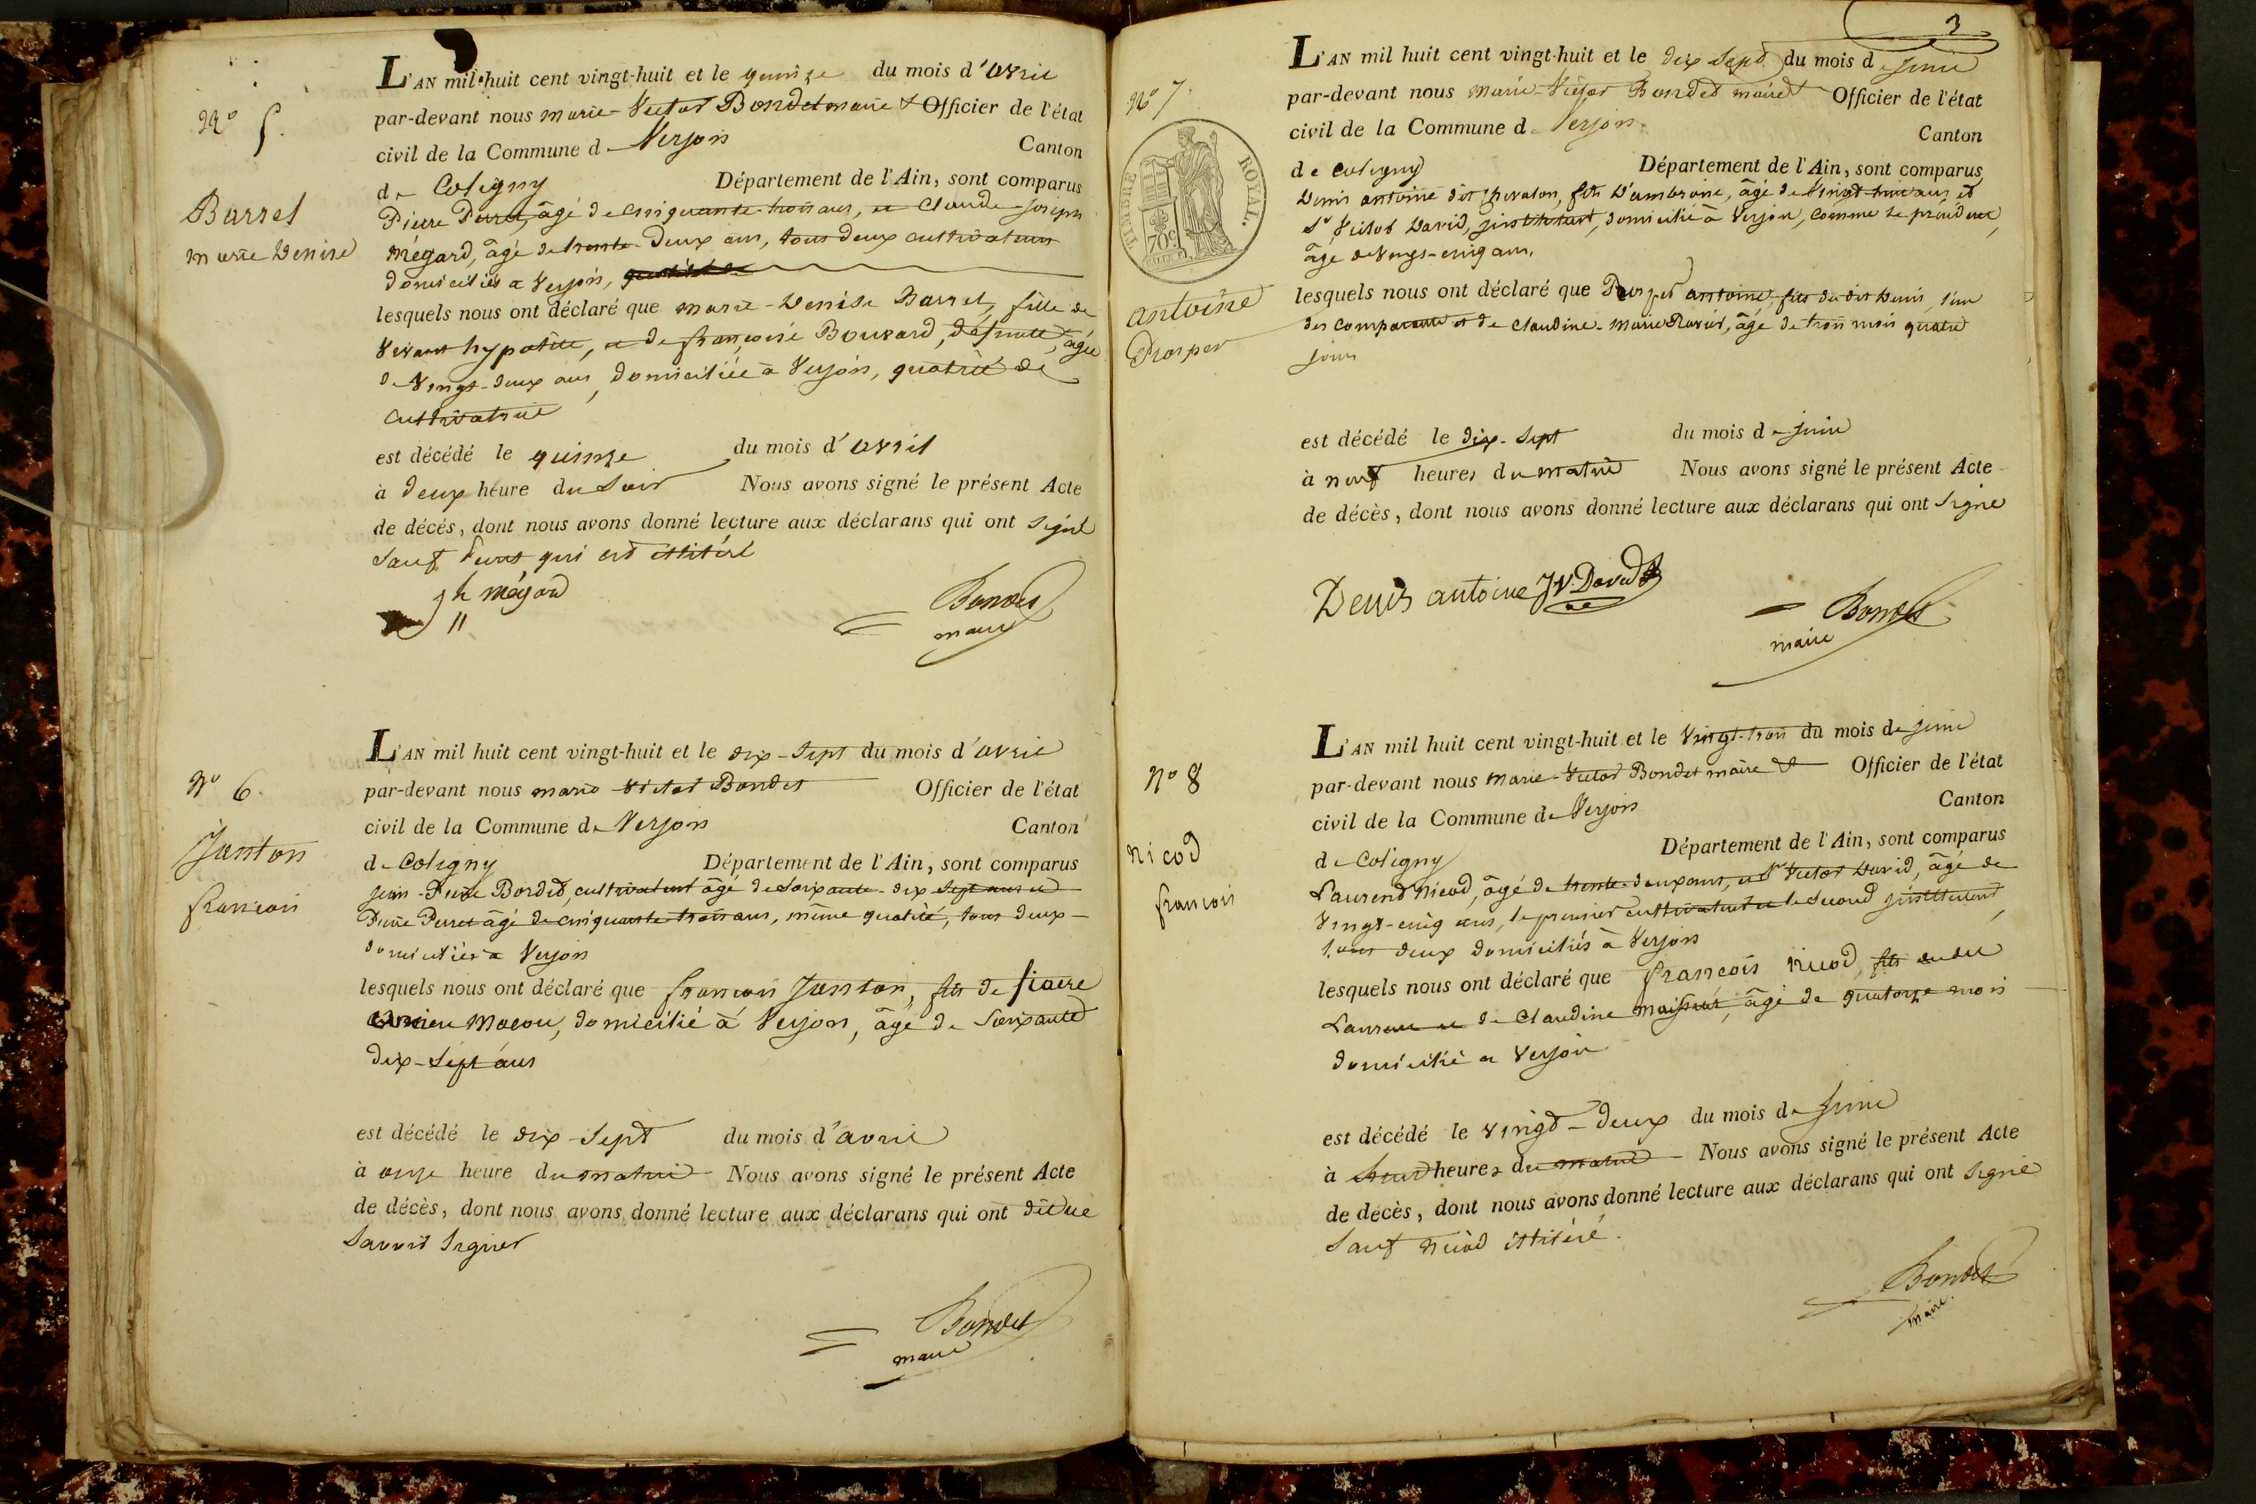 N° 5.
Barret
marie Denise
L'AN mil huit cent vingt-huit et le quinze du mois d'avril
par-devant nous marie-Victor Bondet maire & Officier de l'état
civil de la Commune de Verjon Canton
de Coligny Département de l'Ain, sont comparus
Pierre Perret, âgé de cinquante-trois ans, et Claude-Joseph
Mégard, âgé de trente-deux ans, tous deux cultivateurs
domiciliés à Verjon,
lesquels nous ont déclaré que marie-Denise Barret, fille de
vivant hypolite, et de françoise Bouvard, défunte, âgée
de vingt-deux ans, domiciliée à Verjon, qualité de
cultivatrice
est décédé le quinze du mois d'avril
à deux heure du soir Nous avons signé le présent Acte
de décès, dont nous avons donné lecture aux déclarans qui ont signé
sauf Perret qui est illitéré
j h mégard
Bondet
maire
N° 6.
Janton
francois
L'AN mil huit cent vingt-huit et le dix-sept du mois d'avril
par-devant nous marie victor Bondet Officier de l'état
civil de la Commune de Verjon Canton
de Coligny Département de l'Ain, sont comparus
jean-Pierre Bordet, cultivateur âgé de soixante-dix sept ans et
Pierre Perret âgé de cinquante-trois ans, même qualité, tous deux
domiciliés à Verjon
lesquels nous ont déclaré que françois Janton, fils de
maçon, domicilié à Verjon, âgé de soixante
dix-sept ans
est décédé le dix-sept du mois d'avril
à onze heure du matin Nous avons signé le présent Acte
de décès, dont nous avons donné lecture aux déclarans qui ont dit ne
savoir signer
Bondet
maire
3
N° 7.
TIMBRE ROYAL.
70c
antoine
Prosper
L'AN mil huit cent vingt-huit et le dix sept du mois de juin
par-devant nous marie-Victor Bondet maire & Officier de l'état
civil de la Commune de Verjon Canton
de coligny Département de l'Ain, sont comparus
Denis antoine dit chevalon, fils d'ambroise, âgé de vingt-huit ans, et
Sr Victor David, instituteur, domicilié à Verjon, comme le précédent,
âgé de vingt-cinq ans,
lesquels nous ont déclaré que Prosper antoine, fils du dit Denis l'un
des comparants et de claudine-marie Ravier, âgé de trois mois quatre
jours
est décédé le dix-sept du mois de juin
à neuf heures du matin Nous avons signé le présent Acte
de décès, dont nous avons donné lecture aux déclarans qui ont signé
Denis antoine JV. David
Bondet
maire
N° 8
nicod
françois
L'AN mil huit cent vingt-huit et le vingt-trois du mois de juin
par-devant nous marie-Victor Bondet maire & Officier de l'état
civil de la Commune de Verjon Canton
de Coligny Département de l'Ain, sont comparus
Laurend Nicod, âgé de trente-deux ans, et Sr Victor David, âgé de
vingt-cinq ans, le premier cultivateur et le second instituteur,
tous deux domiciliés à Verjon
lesquels nous ont déclaré que françois nicod, fils du dit
Laurent et de Claudine âgé de quatorze mois
domicilié à Verjon
est décédé le vingt-deux du mois de juin
à heures du matin Nous avons signé le présent Acte
de décès, dont nous avons donné lecture aux déclarans qui ont signé
sauf nicod illitéré.
Bondet
maire